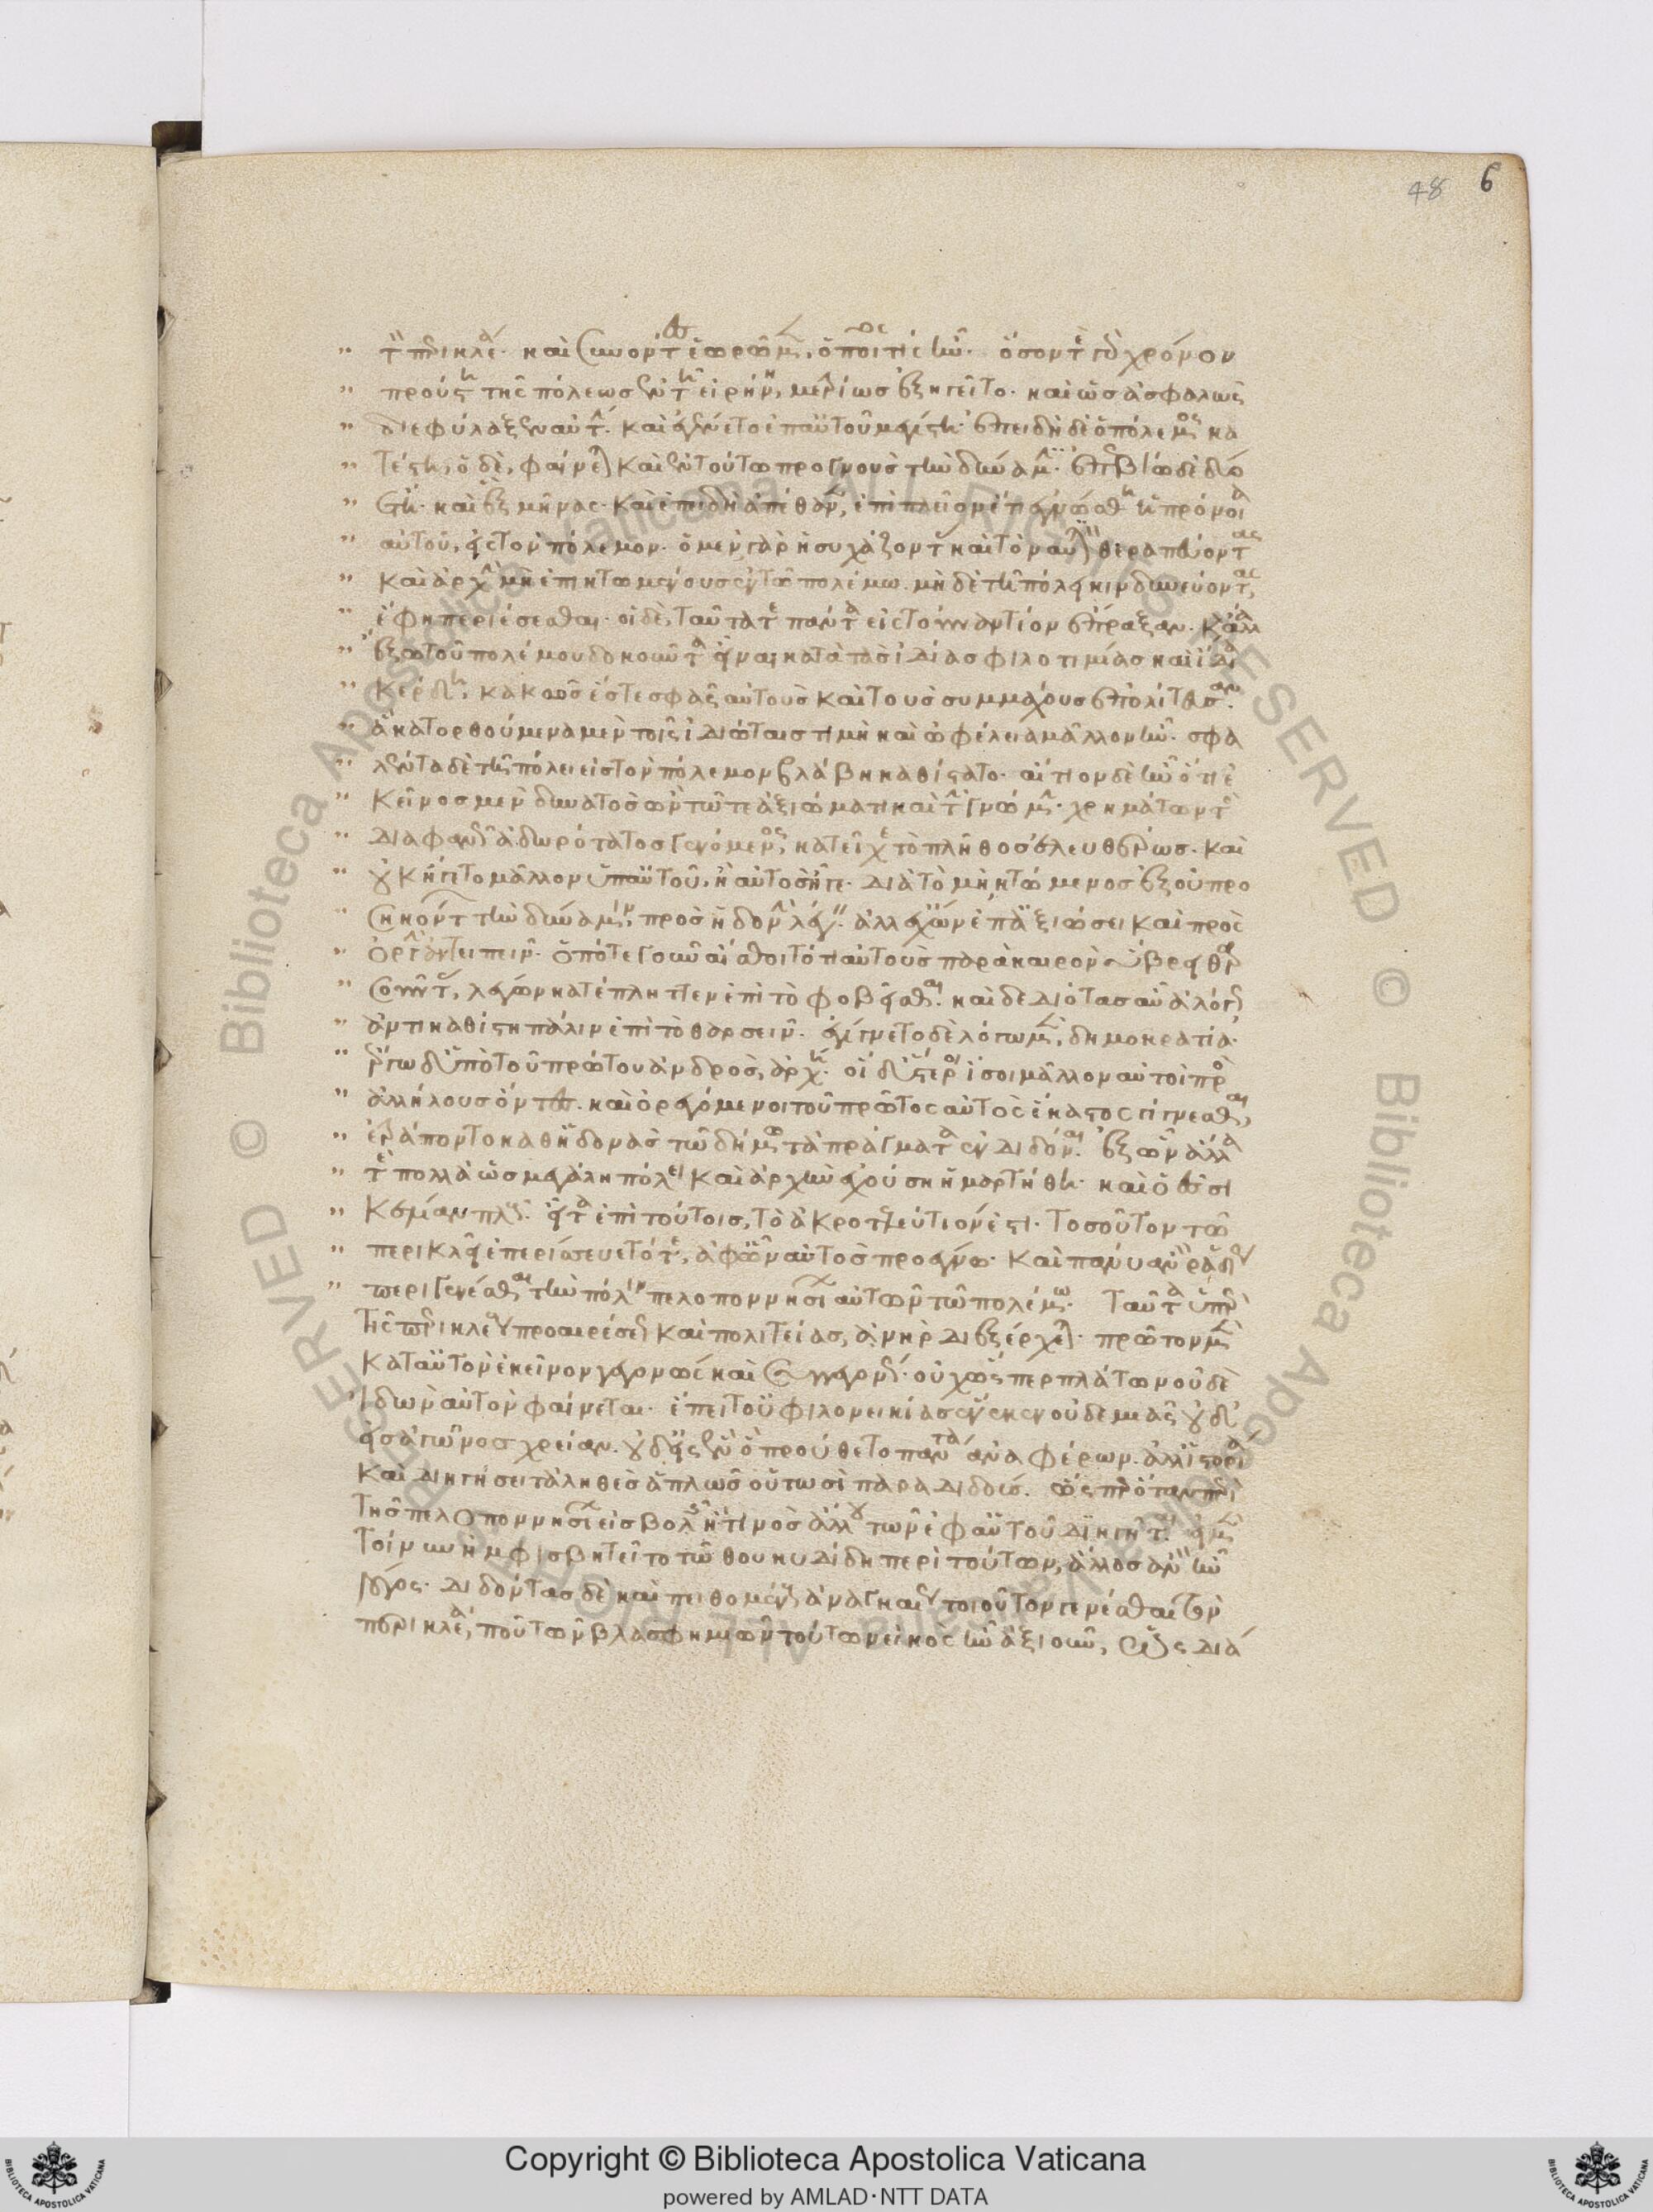 τὸν περικλέα. καὶ συνόντες ἑωρῶμεν, ὁποῖός τις ἦν. ὅσον τε γὰρ χρόνον
προύστη τῆς πόλεως ἐν τῇ εἰρήνῃ, μετρίως ἐξηγεῖτο. καὶ ὡς ἀσφαλῶς
διεφύλαξεν αὐτήν. καὶ ἐγένετο ἐπ' αὐτοῦ μεγίστη. ἐπειδὴ δὲ ὁ πόλεμος κα
τέστη, ὁ δὲ, φαίνεται καὶ ἐν τούτω προγνοὺς τὴν δύναμιν. ἐπεβίω δὲ δύο
ἔτη. καὶ ἓξ μῆνας. καὶ ἐπειδὴ ἀπέθανεν, ἐπὶ πλεῖον ἔτι ἐγνώσθη ἡ πρόνοια
αὐτοῦ, ἐς τὸν πόλεμον. ὁ μὲν γὰρ ἡσυχάζοντάς τε καὶ τὸ ναυτικὸν θεραπεύοντας
καὶ ἀρχὴν μὴ ἐπικτωμένους ἐν τῶ πολέμω. μὴ δὲ τῆ πόλει κινδυνεύοντας,
ἔφη περιέσεσθαι. οἱ δὲ, ταῦτά τε πάντα εἰς τοὐναντίον ἔπραξαν. καὶ ἄλλα
ἔξω τοῦ πολέμου δοκοῦντα εἶναι κατὰ τὰς ἰδίας φιλοτιμίας καὶ ἴδια
κέρδη, κακῶς ἔς τε σφᾶς αὐτοὺς καὶ τοὺς συμμάχους ἐπολίτευσαν.
ἃ κατορθούμενα μὲν τοῖς ἰδιώταις τιμὴ καὶ ὠφέλεια μᾶλλον ἦν. σφα
λέντα δὲ τῆ πόλει εἰς τὸν πόλεμον βλάβη καθίστατο. αἴτιον δὲ ἦν ὅτι ἐ
κεῖνος μὲν δυνατὸς ὢν τῶ τε ἀξιώματι καὶ τῆ γνώμη. χρημάτων τε
διαφανῶς ἀδωρότατος γενόμενος, κατεῖχε τὸ πλῆθος ἐλευθέρως. καὶ
οὐκ ἤγετο μᾶλλον ὑπ' αὐτοῦ, ἢ αὐτὸς ἦγε. διὰ τὸ μὴ κτώμενος ἐξ οὐ προ
σηκόντων τὴν δύναμιν, πρὸς ἡδονὴν λέγειν. ἀλλ' ἔχων ἐπ' ἀξιώσει καὶ πρὸς
ὀργὴν ἀντειπεῖν. ὁπότε γοῦν αἴσθοιτό τι αὐτοὺς παρὰ καιρὸν ὕβρει θαρ
σοῦντας, λέγων κατέπληττεν ἐπὶ τὸ φοβεῖσθαι. καὶ δεδιότας αὖ ἀλόγως
ἀντικαθίστη πάλιν ἐπὶ τὸ θαρσεῖν. ἐγίγνετο δὲ λόγω μὲν, δημοκρατία.
ἔργω δὲ ὑπὸ τοῦ πρώτου ἀνδρὸς, ἀρχή. οἱ δὲ ὕστερον ἴσοι μᾶλλον αὐτοὶ πρὸς
ἀλλήλους ὄντες. καὶ ὀρεγόμενοι τοῦ πρῶτος αὐτὸς ἕκαστος γίγνεσθαι,
ἐτράποντο καθ' ἡδονὰς τῶ δήμω τὰ πράγματα ἐνδιδόναι. ἐξ ὧν ἄλλα
τε πολλὰ ὡς μεγάλη πόλει καὶ ἀρχὴν ἐχούση ἡμαρτήθη. καὶ ὁ ἐς σι
κελίαν πλοῦς. εἶτα ἐπὶ τούτοις, τὸ ἀκροτελεύτιόν ἐστι. τοσοῦτον τῶ
περικλεῖ ἐπερίσσευε τότε, ἀφ' ὧν αὐτὸς προέγνω. καὶ πάνυ ἂν ῥαδίως
περιγενέσθαι τὴν πόλιν πελοποννησίων αὐτῶν τῶ πολέμω. ταῦτα ὑπὲρ
τῆς περικλέους προαιρέσεως καὶ πολιτείας, ἀνὴρ διεξέρχεται. πρῶτον μὲν
κατ' αὐτὸν ἐκεῖνον γεγονὼς καὶ συγγεγονώς. οὐχ ὥσπερ πλάτων οὐδὲ
ἰδὼν αὐτὸν φαίνεται. ἔπειτ' οὐ φιλονεικίας ἕνεκεν οὐδεμιᾶς οὐδ'
εἰς ἀγῶνος χρείαν. οὐδ' εἰς ἓν ὃ προύθετο πάντα ἀναφέρων. ἀλλ' ἱστορία
καὶ διηγήσει τἀληθὲς ἁπλῶς οὕτωσὶ παραδιδούς. ὥσπερ ὅταν περὶ
τῆς πελοποννησίων εἰσβολῆς ἤ τινος ἄλλου τῶν ἐφ' αὑτοῦ διηγῆται. εἰ μὲν
τοίνυν ἠμφισβητεῖτο τῶ θουκυδίδη περὶ τούτων, ἄλλος ἂν ἦν
λόγος. διδόντας δὲ καὶ πειθομένους ἀναγκαίως τοιοῦτον γενέσθαι τὸν
περικλέα, ποῦ τῶν βλασφημιῶν τούτων εἰκὸς ἦν ἀξιοῦν, ὥς διὰ
48 6
Copyright © Biblioteca Apostolica Vaticana
powered by AMLAD·NTT DATA